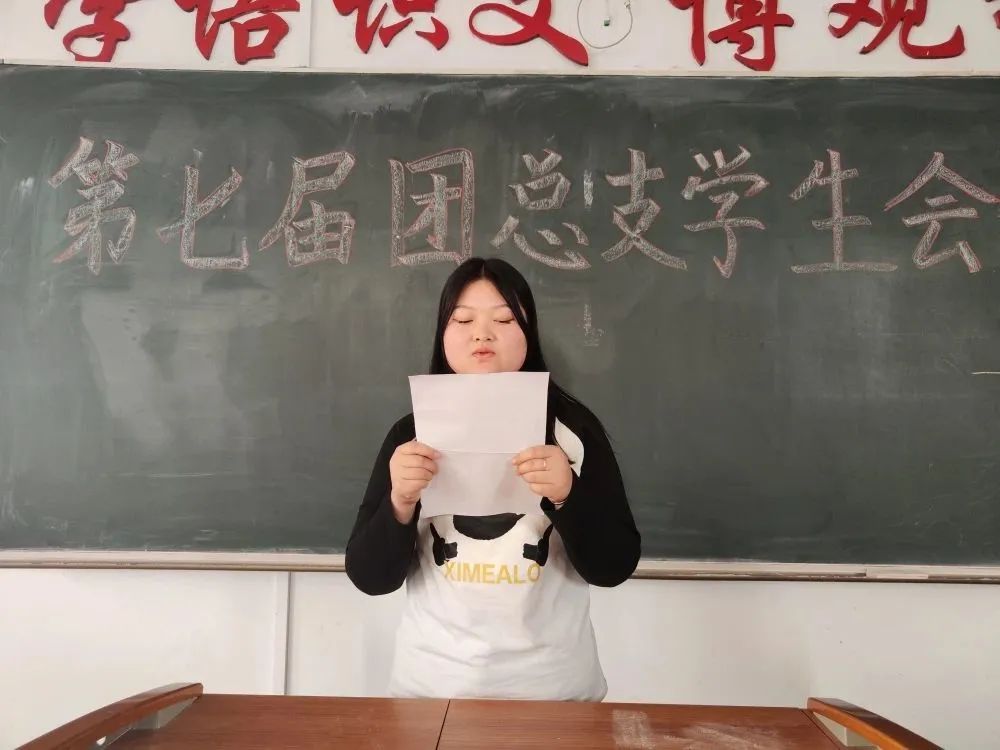 学语识文 博观
第七届团总支学生会
XIMEALO